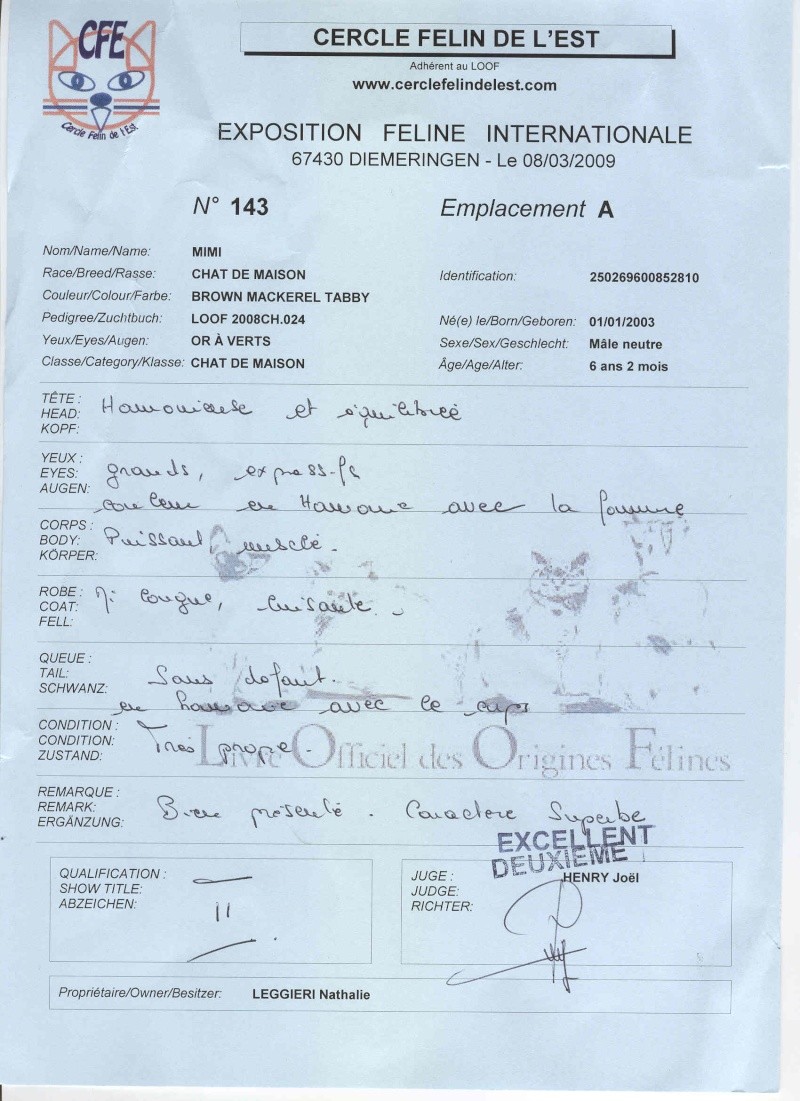 CFE
Cercle Félin de l'Est
CERCLE FELIN DE L'EST
Adhérent au LOOF
www.cerclefelindelest.com
EXPOSITION FELINE INTERNATIONALE
67430 DIEMERINGEN - Le 08/03/2009
N° 143 Emplacement A
Nom/Name/Name: MIMI
Race/Breed/Rasse: CHAT DE MAISON Identification: 250269600852810
Couleur/Colour/Farbe: BROWN MACKEREL TABBY
Pedigree/Zuchtbuch: LOOF 2008CH.024 Né(e) le/Born/Geboren: 01/01/2003
Yeux/Eyes/Augen: OR À VERTS Sexe/Sex/Geschlecht: Mâle neutre
Classe/Category/Klasse: CHAT DE MAISON Âge/Age/Alter: 6 ans 2 mois
TÊTE :
HEAD: Harmonieuse et équilibrée
KOPF:
YEUX :
EYES: grands, expressifs
AUGEN:
couleur en Harmonie avec la fourrure
CORPS :
BODY: Puissant, musclé.
KÖRPER:
ROBE : Mi longue, luisante.
COAT:
FELL:
QUEUE :
TAIL: Sans défaut.
SCHWANZ:
en harmonie avec le corps
CONDITION :
CONDITION: Très propre.
ZUSTAND:
Livre Officiel des Origines Félines
REMARQUE :
REMARK: Bien présenté. Caractère Superbe
ERGÄNZUNG:
EXCELLENT
DEUXIEME
QUALIFICATION :
SHOW TITLE:
ABZEICHEN:
JUGE : HENRY Joël
JUDGE:
RICHTER:
Propriétaire/Owner/Besitzer: LEGGIERI Nathalie